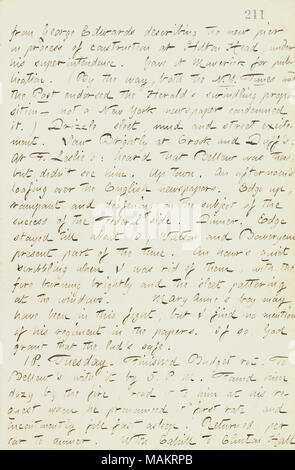 241
from George Edwards describing the new pier
in process of construction at Hilton Head, under
his superintendence. Gave it Maverick for pub-
lication. (By the way, both the N.Y. Times and
the Post endorsed the Herald's swindling propo-
sition — not a New York newspaper condemned
it.) Drizzle, sleet, mud and street excite-
ment. Saw Brightly at Crook and Duff's.
At F. Leslie's: heard that Bellew was there,
but didn't see him. Up town. An afternoon's
loafing over the English newspapers. Edge up,
rampant and deafening on the subject of the
success of the Federal side. Dinner. Edge
stayed till about 10, Watson and Boweryem
present, part of the time. An hour's quiet
scribbling when I was rid of them, with the
fire burning brightly and the sleet pattering
at the windows. Mary Anne's boy may
have been in this fight, but I find no mention
of his regiment in the papers. If so, God
grant that the lad's safe.
18. Tuesday. Finished Budget &c. To
Bellew's with it by 3 P.M. Found him
dozy by the fire, read to him at his re-
quest when he pronounced it first rate and
incontinently fell fast asleep. Returned, per
car to dinner. With Cahill to Clinton Hall
alamy
Image ID: MAKRPB
www.alamy.com